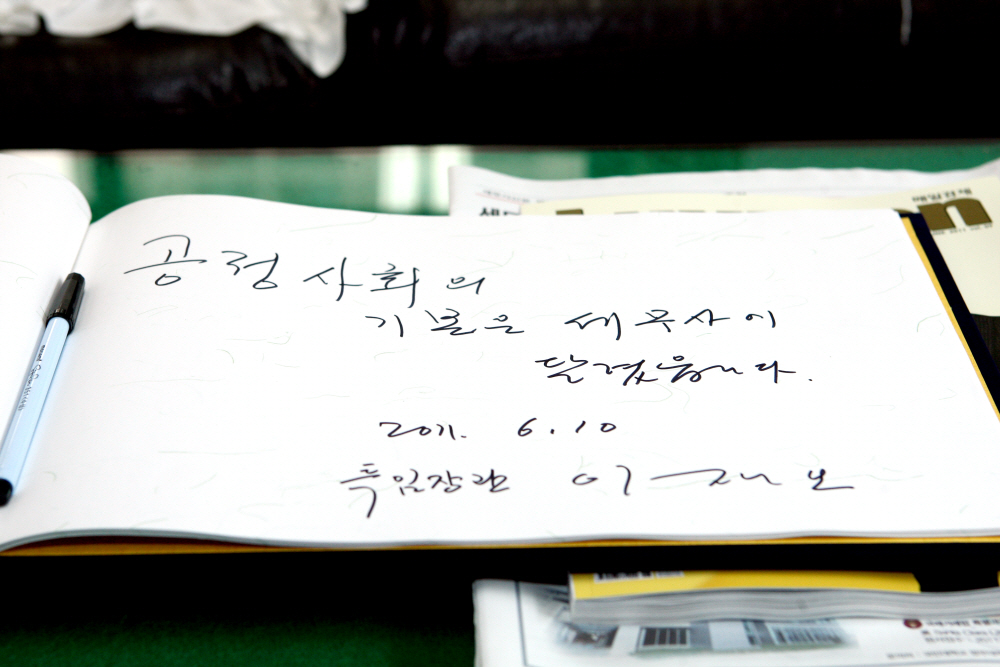 공정사회의
기본은 세무사이
달렸읍니다.
2011. 6. 10
특임장관 이재오